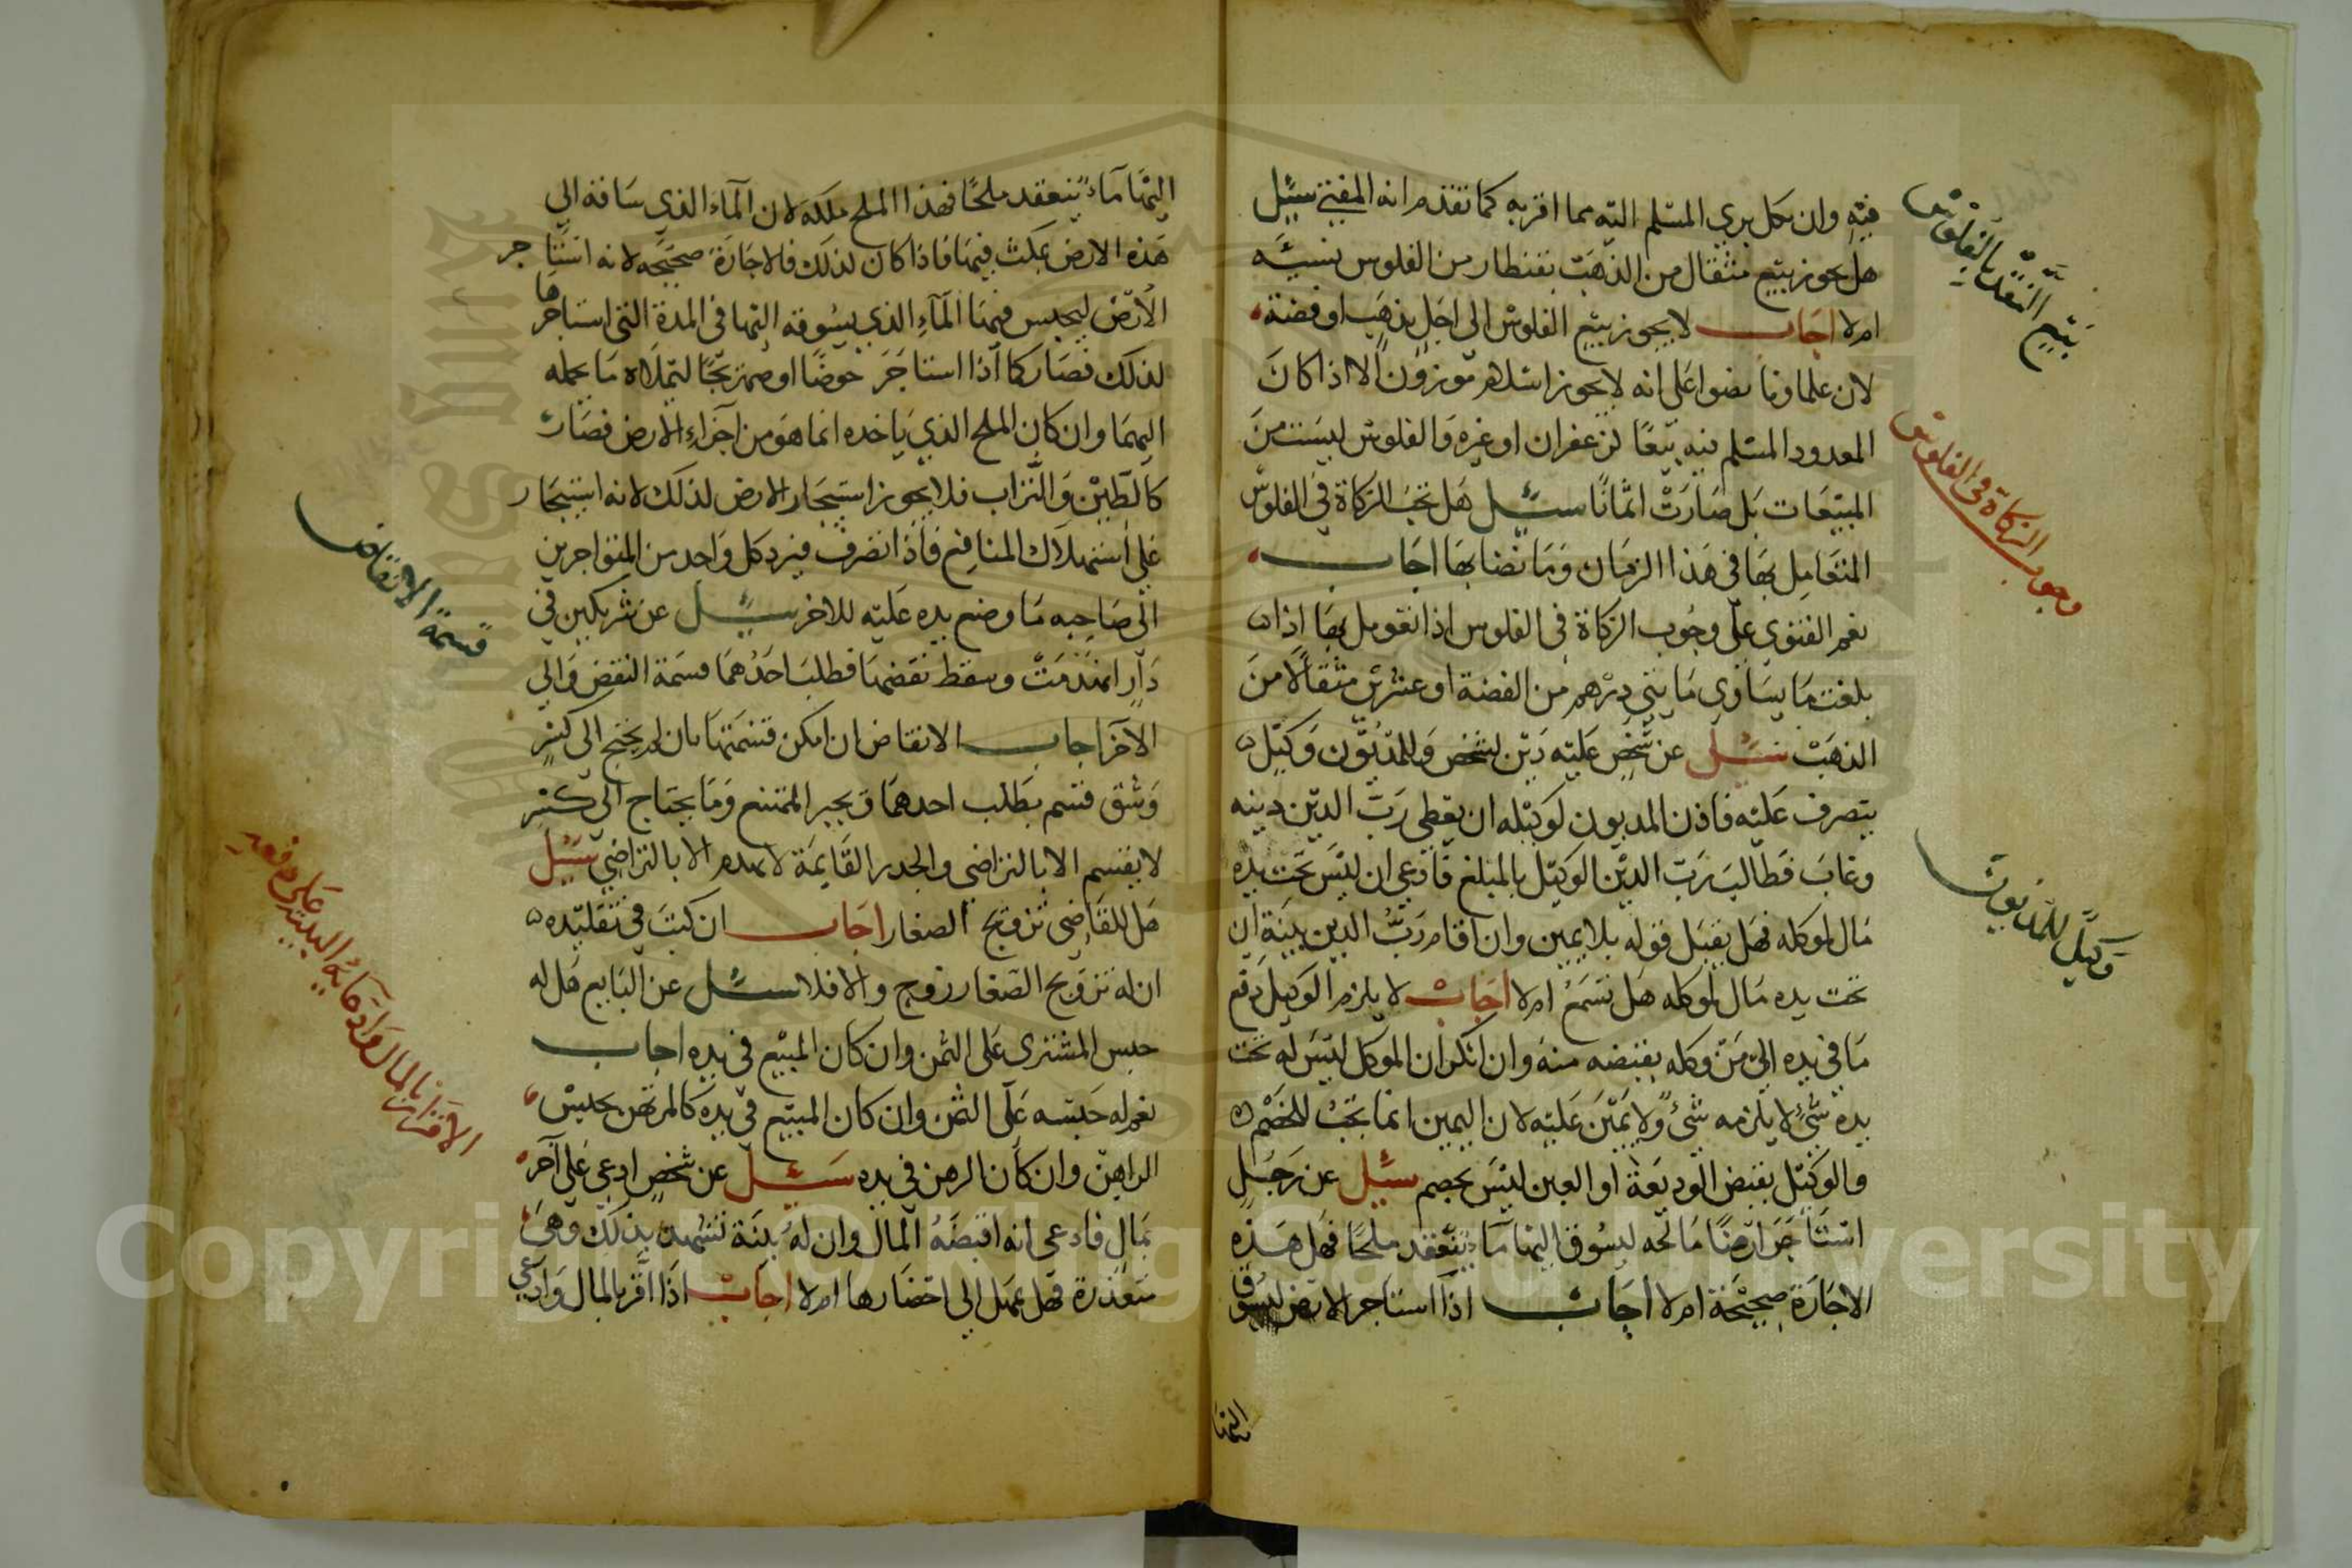 فيه وان كل بري المسلم اليه مما اقر به كما تقدم انه المفتي سئل
هل يجوز بيع مثقال من الذهب بقنطار من الفلوس نسيئه
ام لا اجاب لا يجوز بيع الفلوس الى اجل بذهب او فضة
لان علماونا نصوا على انه لا يجوز اسلام موزون الا اذا كان
المعدود المسلم فيه بيعا لزعفران او غيره والفلوس ليست من
المبيعات بل صارت اثمانا سئل هل تجب الزكاة في الفلوس
المتعامل بها في هذا الزمان وما نصابها اجاب
نعم الفتوى على وجوب الزكاة في الفلوس اذا تعومل بها اذا
بلغت ما يساوي مايتي درهم من الفضة او عشرين مثقالا من
الذهب سئل عن شخص عليه دين لشخص وللمديون وكيل
يتصرف عليه فاذن المديون لوكيله ان يعطي رب الدين دينه
وغاب فطالب رب الدين الوكيل بالمبلغ فادعى ان ليس تحت يده
مال لموكله فهل يقبل قوله بلا يمين وان اقام رب الدين بينة ان
تحت يده مال لموكله هل تسمع ام لا اجاب لا يلزم الوكيل دفع
ما في يده الى من وكله بقبضه منه وان انكر ان الموكل ليس له تحت
يده شئ لا يلزمه شئ ولا يمين عليه لان اليمين انما تجب للخصم
والوكيل بقبض الوديعة او العين ليس بخصم سئل عن رجل
استاجر ارضا مالحه ليسوق اليها ماء ينعقد ملحا فهل هذه
الاجارة صحيحة ام لا اجاب اذا استاجر الارض ليسوق
اليها
بيع النقد بالفلوس
وجوب الزكاة في الفلوس
وكيل للمديون
اليها ماء ينعقد ملحا فهذا الملح ملكه لان الماء الذي ساقه الي
هذه الارض يمكث فيها فاذا كان لذلك فالاجارة صحيحه لانه استاجر
الارض ليحبس فيها الماء الذي يسوقه اليها في المدة التي استاجرها
لذلك فصار كما اذا استاجر حوضا او صهريجا ليملاه ما يحمله
اليهما وان كان الملح الذي ياخده انما هو من اجزاء الارض فصار
كالطين والتراب فلا يجوز استيجار الارض لذلك لانه استيجار
على استهلاك المنافع فاذا تصرف فيرد كل واحد من المتواجرين
الى صاحبه ما وضع يده عليه للاخر سئل عن شريكين في
دار انهدمت وسقط نقضها فطلب احدهما قسمة النقض وابى
الآخر اجاب الانقاض ان امكن قسمتها بان لم يحتج الى كسر
وشق قسم بطلب احدهما ويجبر الممتنع وما يحتاج الى كسر
لا يقسم الا بالتراضي والجدر القايمة لا تهدم الا بالتراضي سئل
هل للقاضي تزويج الصغار اجاب ان كتب في تقليده
ان له تزويج الصغار زوج والا فلا سئل عن البايع هل له
حبس المشتري على الثمن وان كان المبيع في يده اجاب
نعم له حبسه على الثمن وان كان المبيع في يده كالمرتهن بحبس
الراهن وان كان الرهن في يده سئل عن شخص ادعى على آخر
بمال فادعى انه اقبضه المال وان له بينة تشهد بذلك وهي
متعذرة فهل يمهل الى احضارها ام لا اجاب اذا اقر بالمال وادعى
قسمة الانقاض
الاقرار بالمال واقامة البينة على دفعه
Copyright © King Saud University